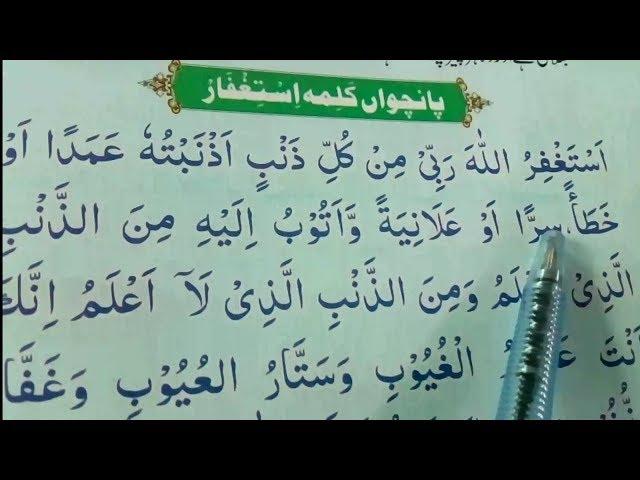 پانچواں کَلِمه اِسْتِغْفَارْ
اَسْتَغْفِرُ اللّٰهَ رَبِّىْ مِنْ كُلِّ ذَنْۢبٍ اَذْنَبْتُهٗ عَمَدًا اَوْ
خَطَأً سِرًّا اَوْ عَلَانِيَةً وَّاَتُوْبُ اِلَيْهِ مِنَ الذَّنْۢبِ
الَّذِىْ وَمِنَ الذَّنْۢبِ الَّذِىْ لَآ اَعْلَمُ اِنَّكَ
اَنْتَ الْغُيُوْبِ وَسَتَّارُ الْعُيُوْبِ وَغَفَّا